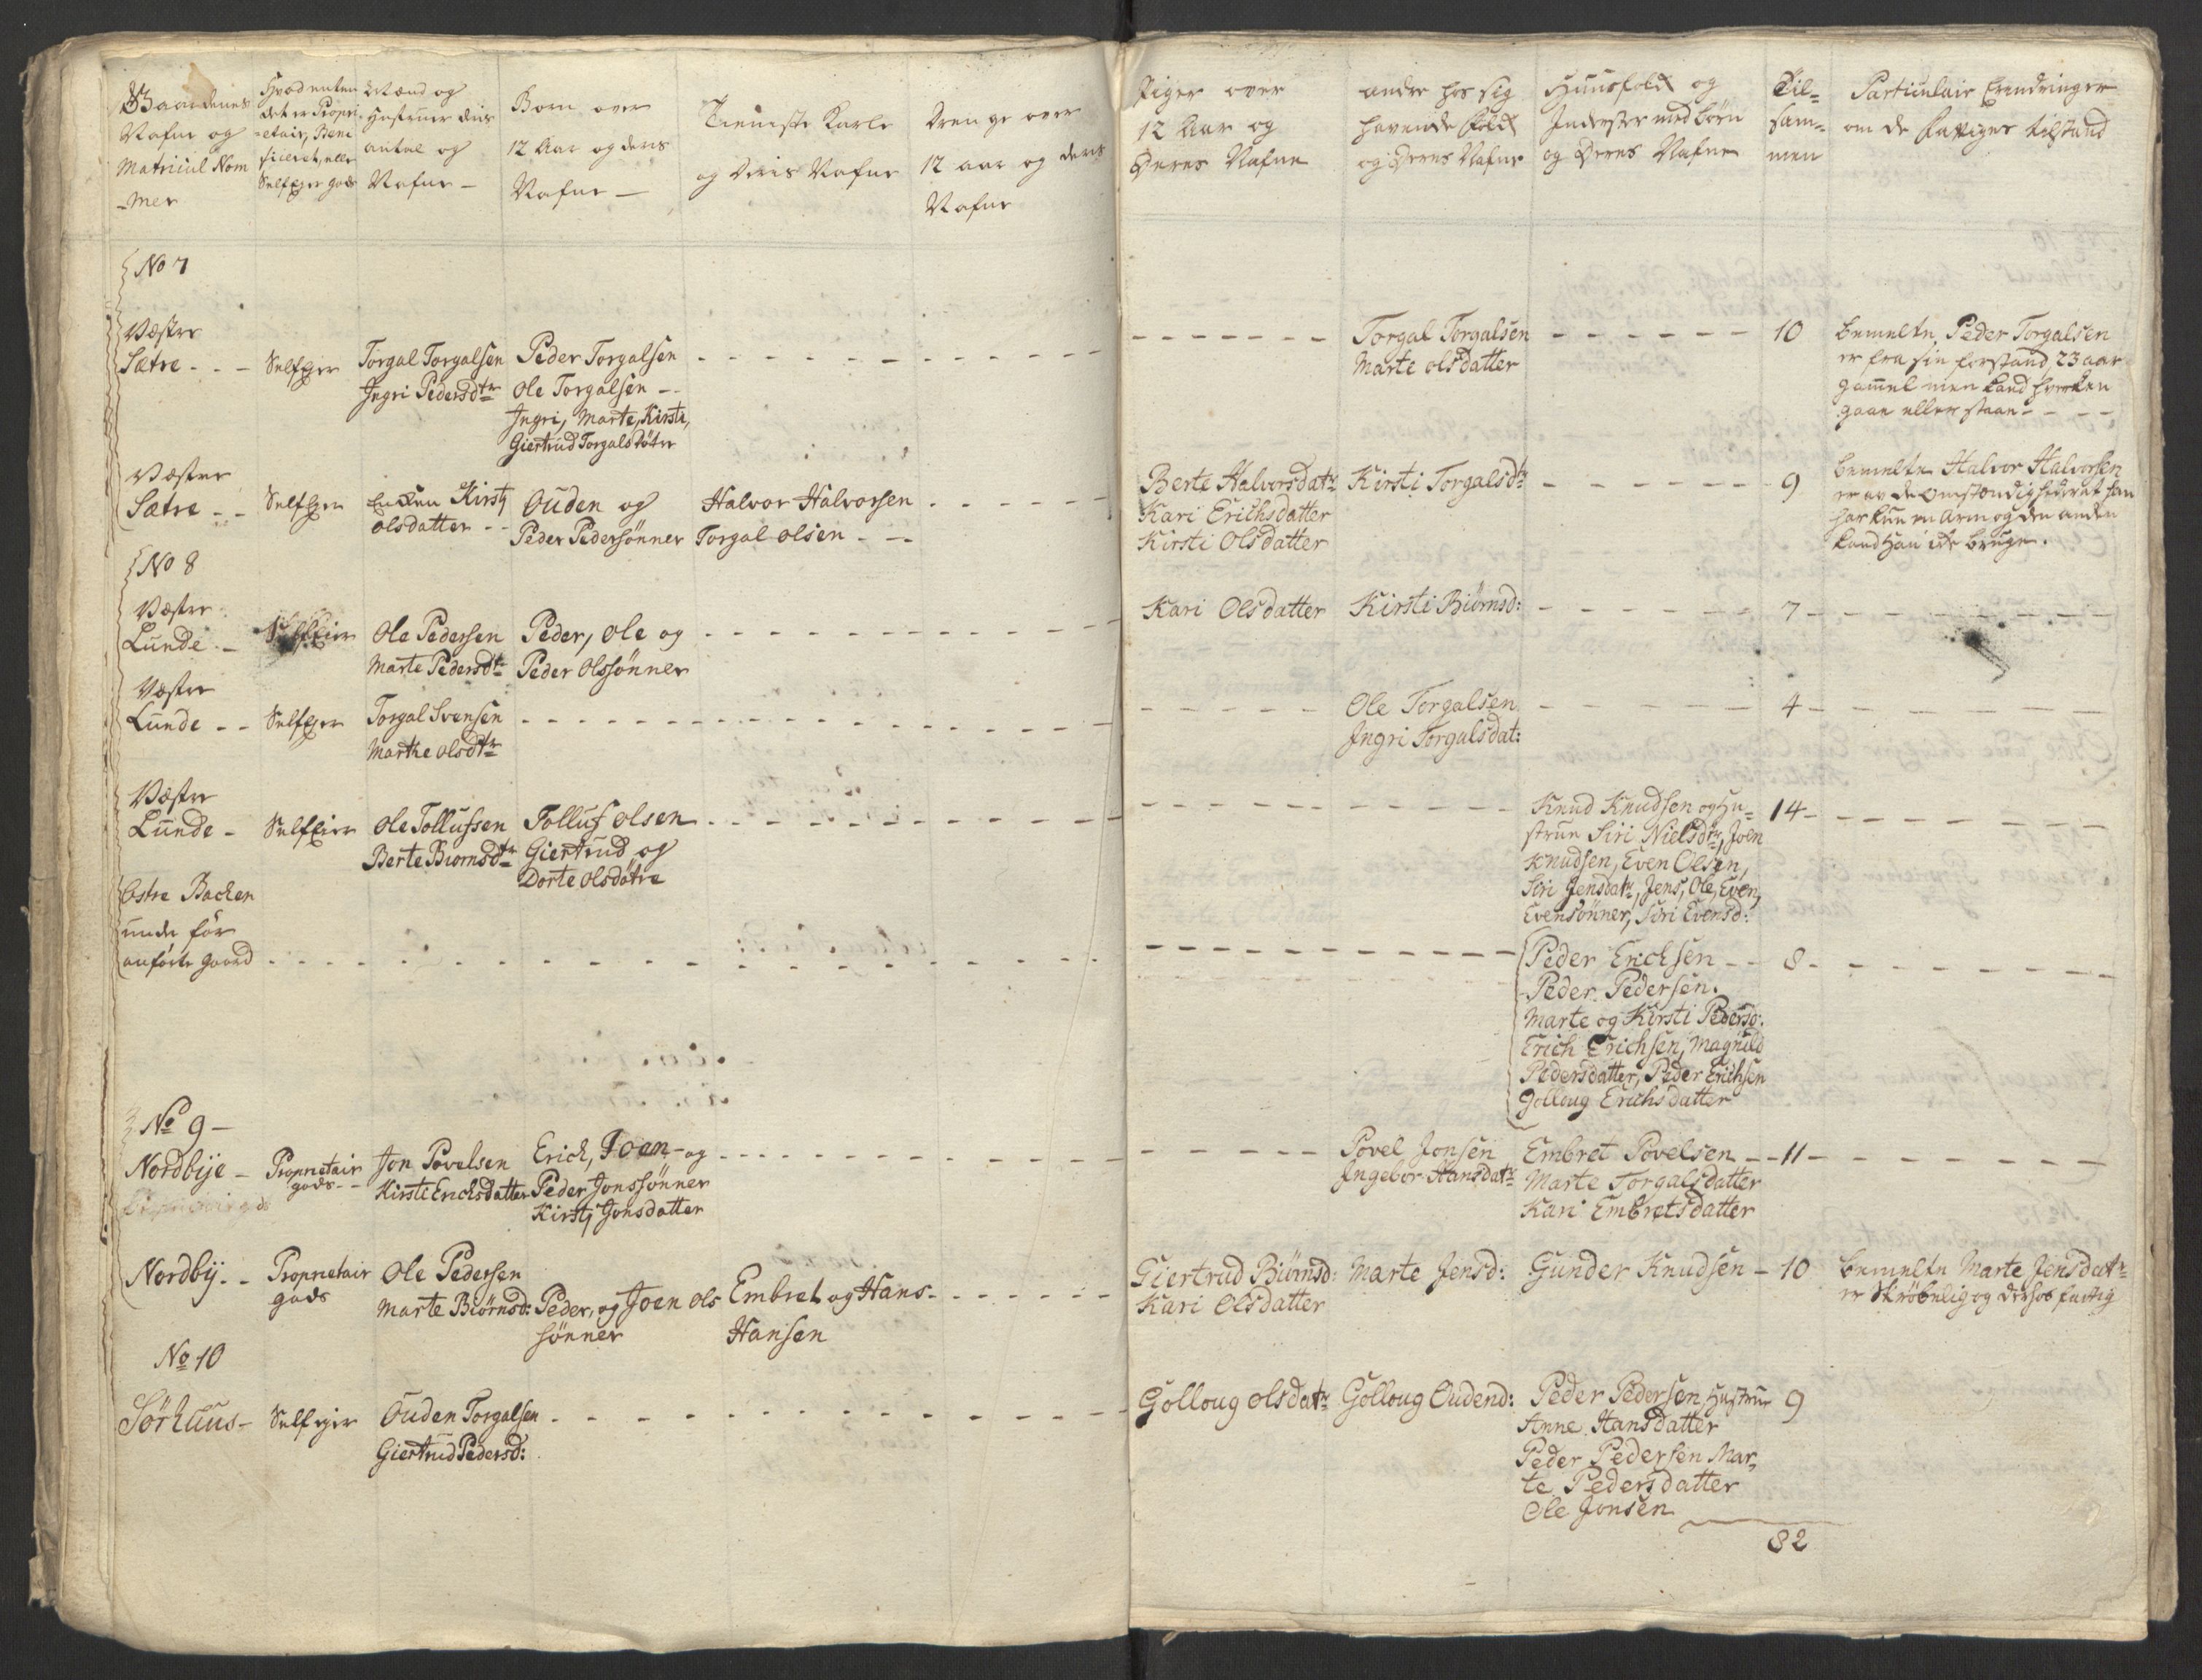 Gaardenes
Nafne og
Matricul Nom
-mer
Hvad enten
det er Propri-
-etair, Bene
ficeret, eller
Selfejer gods
Mænd og
Hustruer dris
antal og
Nafne -
Børn over
12 Aar og deris
Nafne -
Tieniste Karle
og deris Nafne
Drenge over
12 aar og deris
Nafne
Piger over
12 Aar og
Deres Nafne
andre hos sig
havende Folch
og Deres Nafne
Huusfolch og
Inderster med børn
og Deres Nafne
Til-
sam-
men
Particulair Erindringer
om de fattiges tilstand
No 7
Væstre
Sætre - - -
Selfejer
Torgal Torgalsen
Ingri Pedersdtr
Peder Torgalsen
Ole Torgalsen - -
Ingri, Marte, Kirsti,
Giertrud Torgalsdøtre
Torgal Torgalsen
Marte olsdatter
10
bemelte, Peder Torgalsen
er fra sin forstand, 23 aar
gammel men kand hverken
gaae eller staae - - -
Væstre
Sætre - -
Selfejer
Enken Kirstj
olsdatter - -
Ouden og
Peder Pedersønner
Halvor Halvorsen
Torgal olsen - -
Berte Halvorsdatr
Kari Erichsdatter
Kirsti Olsdatter
Kirsti Torgalsdtr
9
bemelte Halvor Halvorsen
er av de Omstændigheder at han
har kun en Arm og den anden
kand Han icke bruge.
No 8
Væstre
Lunde - -
Selfejer
Ole Pedersen
Marte Pedersdtr
Peder, Ole og
Peder Olssønner
Kari Olsdatter
Kirsti Biørnsd:
7
Væstre
Lunde - -
Selfejer
Torgal Svensen
Marthe olsdtr
Ole Torgalsen
Ingri Torgalsdat:
4
Væstre
Lunde -
Selfeier
Ole Tollufsen
Berte Biornsdtr
Tolluf olsen
Giertrud og
Dorte olsdøtre
Knud Knudsen og Hu-
strue Siri Nielsdtr, Joen
Knudsen, Even Olsen,
Siri Jensdatr, Jens, Ole, Even,
Evensønner, Siri Evensd:
14
Østre Bachen
under før
anførte gaard
Peder Erichsen - -
Peder Pedersen.
Marte og Kirsti Pedersd.
Erich Erichsen, Magnild
Pedersdatter, Peder Erichsen
Golloug Erichsdatter
8
No 9 -
Nordbije -
Proprietair
gods - -
Jon Povelsen
Kirsti Erichsdatter
Erich, Joen - og
Peder Jonssønner
Kirstj Jonsdatter
Povel Jonsen
Ingebor Hansdatr
Embret Povelsen
Marte Torgalsdatter
Kari Embretsdatter
11
Nordbÿ - -
Proprietair
gods
Ole Pedersen
Marte Biørnsd:
Peder, og Joen Ols
sønner
Embret og Hans
Hansen
Giertrud Biørnsd:
Kari Olsdatter
Marte Jensd:
Gunder Knudsen
10
bemelte Marte Jensdatr
er Skrøbelig og derhos fattig
No 10
Sørhuus -
Selfejer
Ouden Torgalsen
Giertrud Pedersd:
Golloug olsdatr
Golloug Oudend:
Peder Pedersen Hustrue
Anne Hansdatter
Peder Pedersen Mar,
te Pedersdatter
Ole Jonsen
9
82